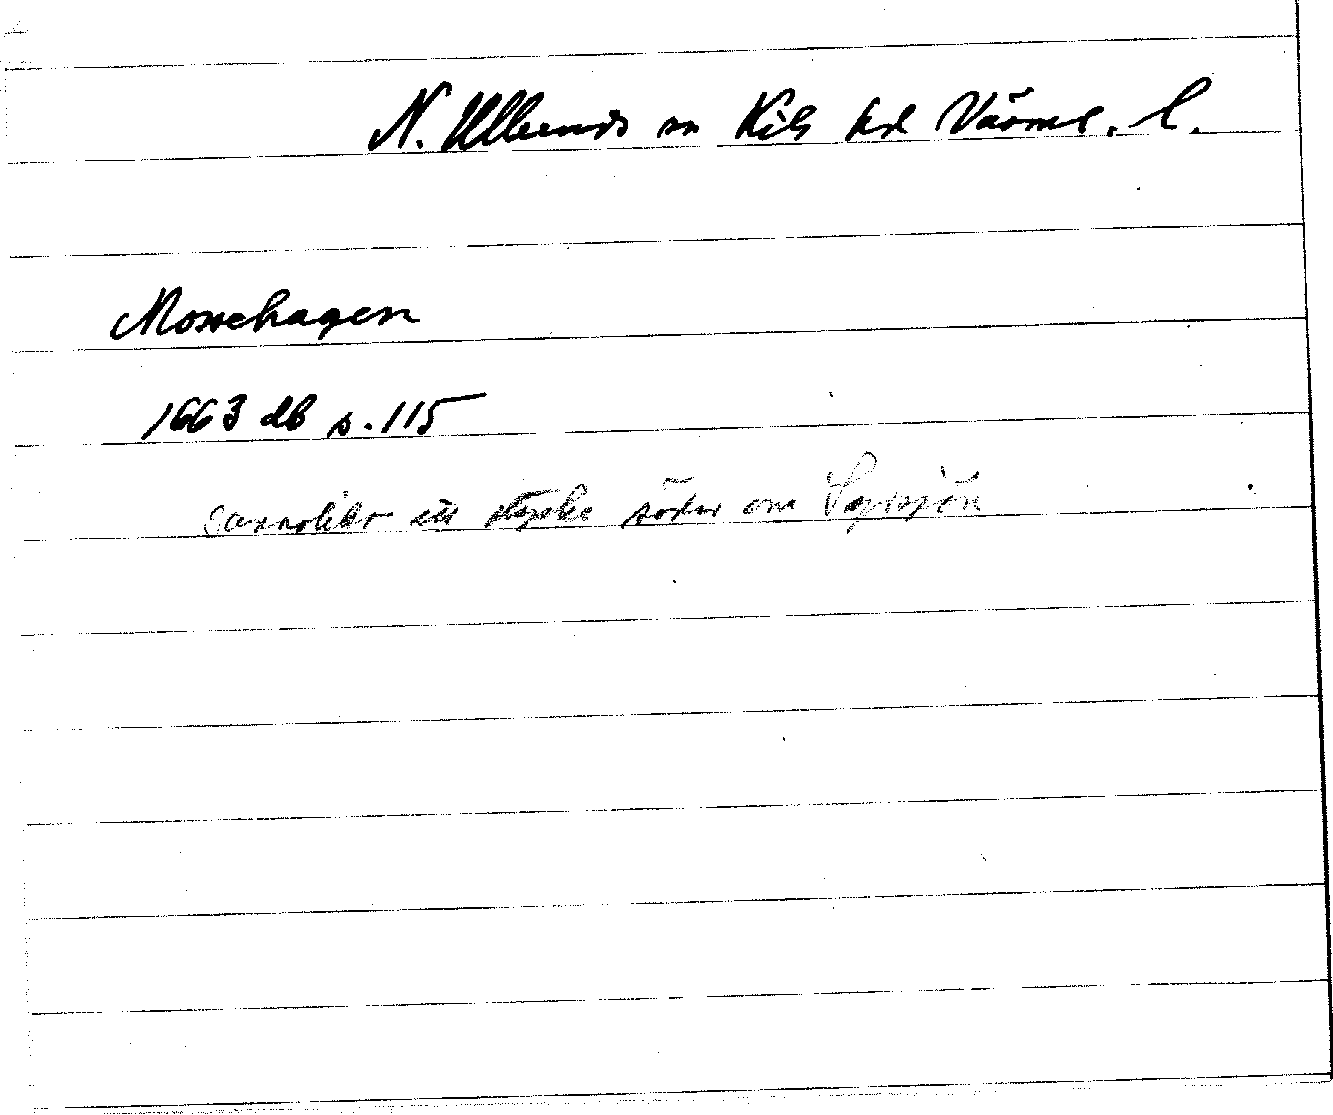 N. Ulleruds sn Kils hd Värml. l.
Mossehagen
1663 db s. 115
sannolikt ett stycke söder om